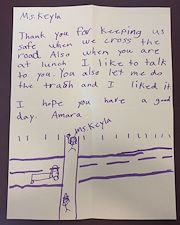 Ms. Keyla
Thank you for keeping us
safe when we cross the
road. Also when you are
at lunch I like to talk
to you. You also let me do
the trash and I liked it
I hope you have a good
day. Amara
Ms. Keyla